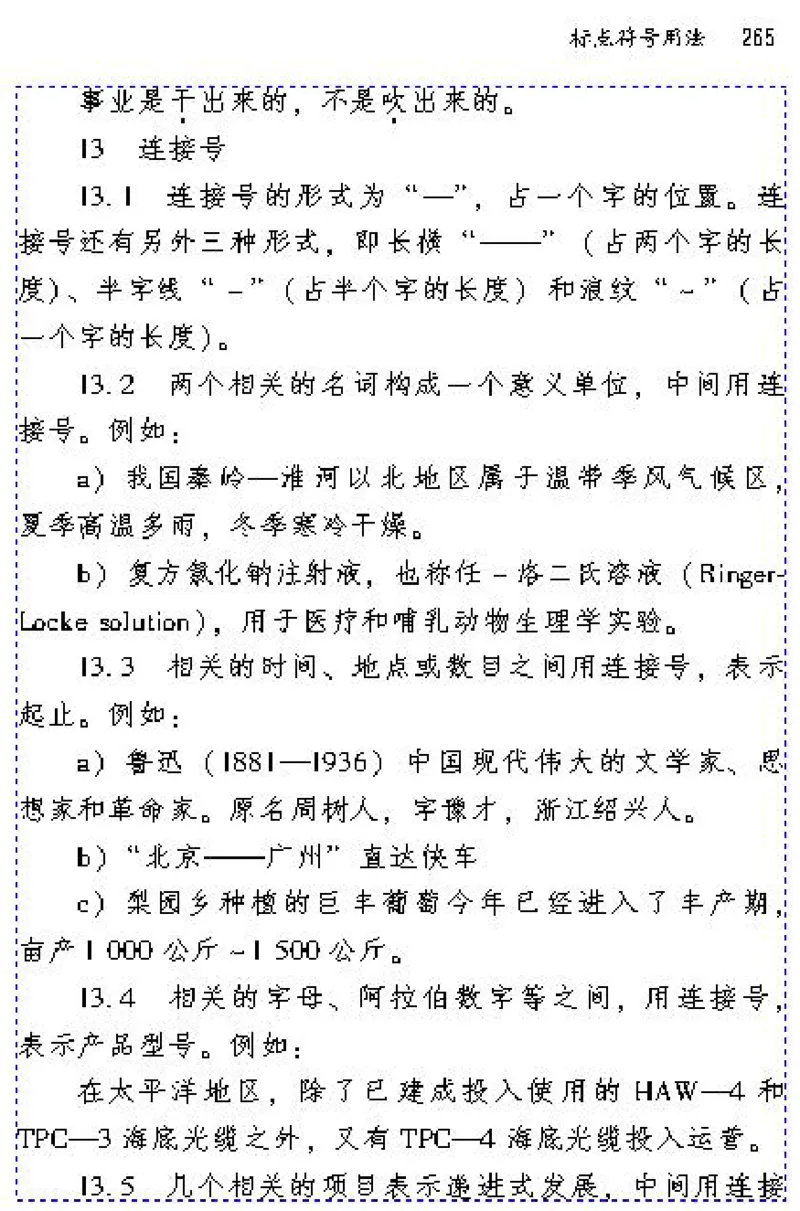 标点符号用法 265
事业是干出来的，不是吹出来的。
13 连接号
13.1 连接号的形式为“—”，占一个字的位置。连
接号还有另外三种形式，即长横“——”（占两个字的长
度）、半字线“–”（占半个字的长度）和浪纹“~”（占
一个字的长度）。
13.2 两个相关的名词构成一个意义单位，中间用连
接号。例如：
a）我国秦岭—淮河以北地区属于温带季风气候区，
夏季高温多雨，冬季寒冷干燥。
b）复方氯化钠注射液，也称任–洛二氏溶液（Ringer-
Locke solution），用于医疗和哺乳动物生理学实验。
13.3 相关的时间、地点或数目之间用连接号，表示
起止。例如：
a）鲁迅（1881—1936）中国现代伟大的文学家、思
想家和革命家。原名周树人，字豫才，浙江绍兴人。
b）“北京——广州”直达快车
c）梨园乡种植的巨丰葡萄今年已经进入了丰产期，
亩产1 000公斤~1 500公斤。
13.4 相关的字母、阿拉伯数字等之间，用连接号，
表示产品型号。例如：
在太平洋地区，除了已建成投入使用的HAW—4和
TPC—3海底光缆之外，又有TPC—4海底光缆投入运营。
13.5 几个相关的项目表示递进式发展，中间用连接